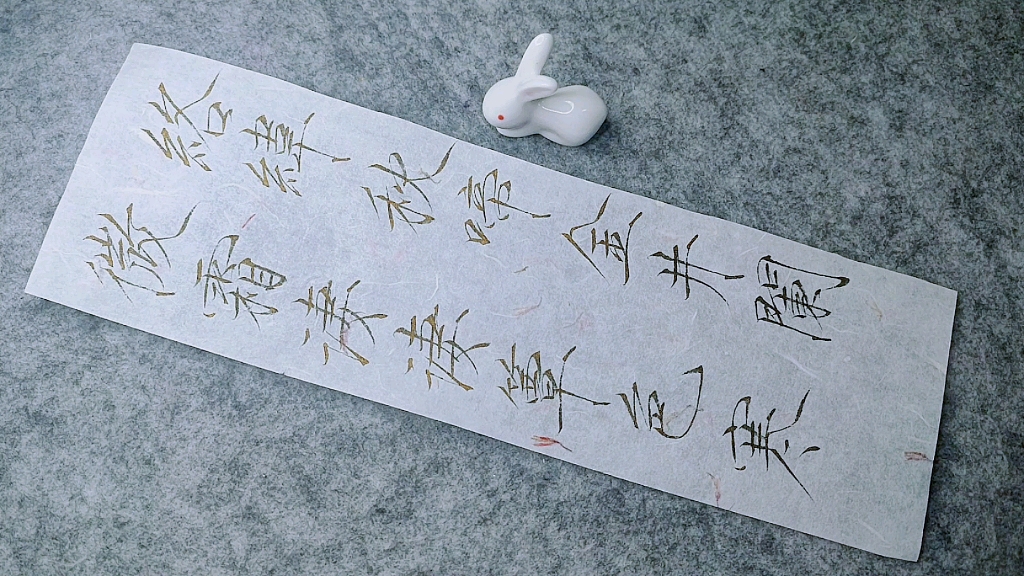 絡緯秋啼金井闌
微霜凄凄簟色寒